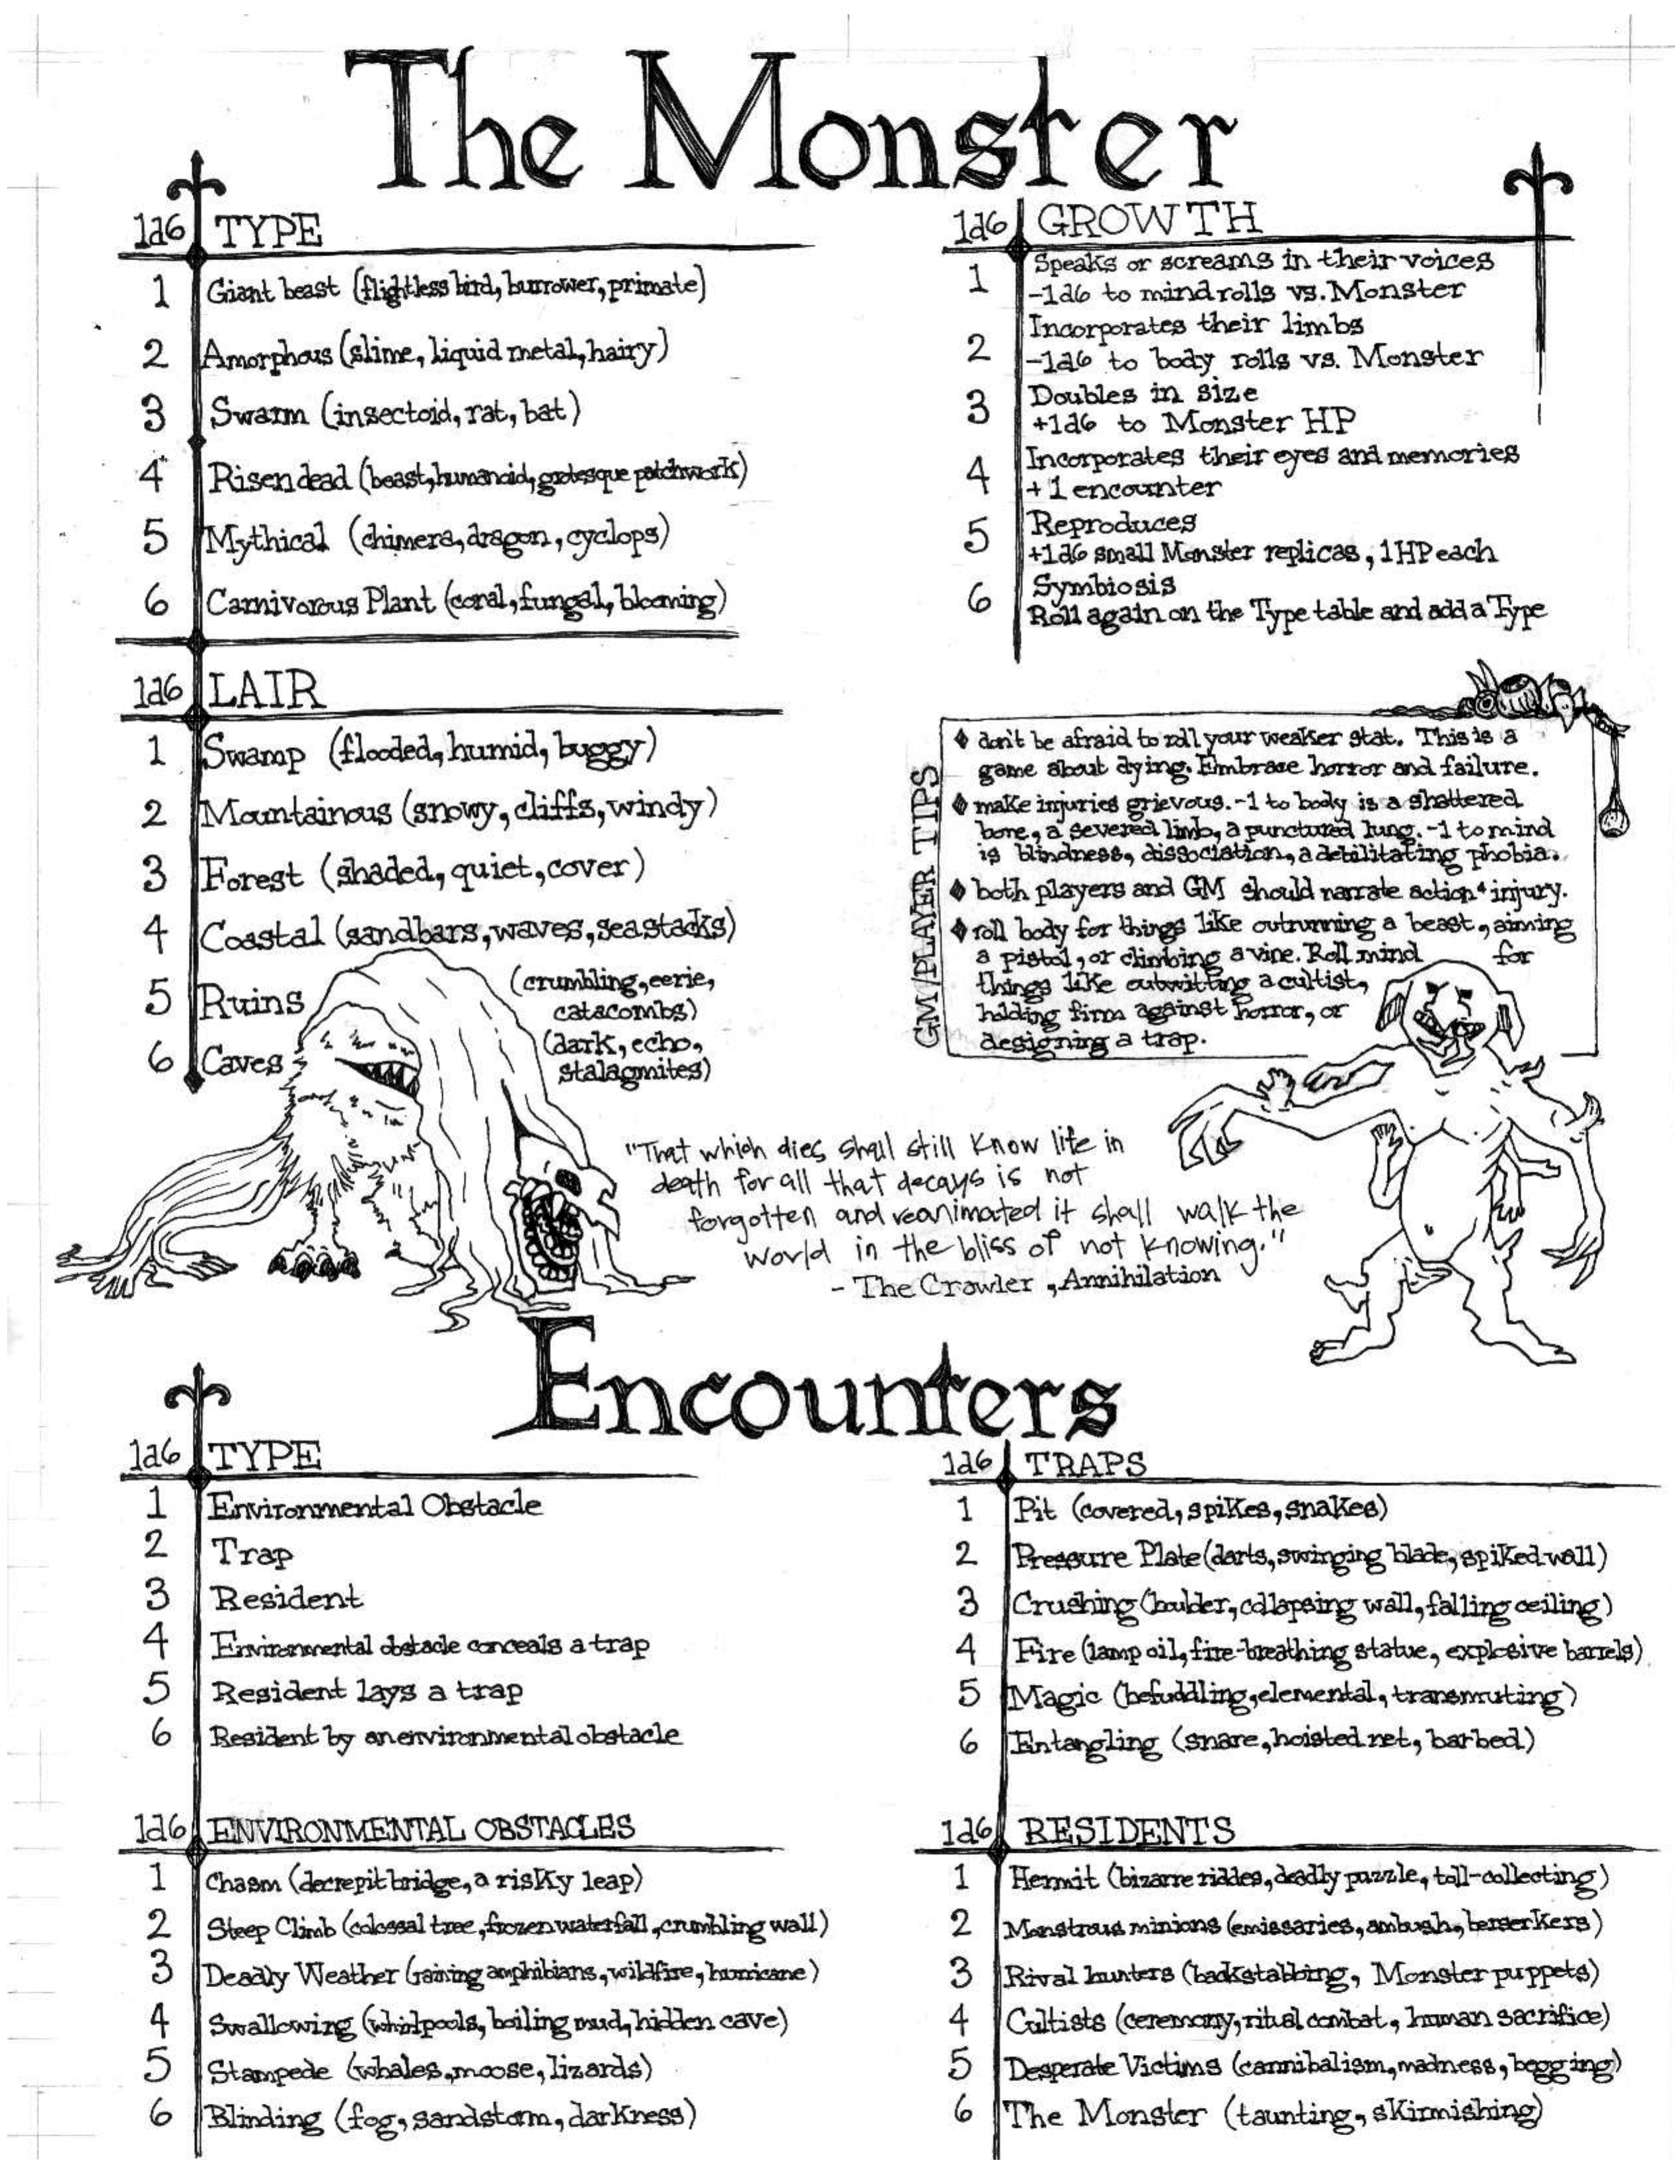 The Monster
1d6 TYPE
1 Giant beast (flightless bird, burrower, primate)
2 Amorphous (slime, liquid metal, hairy)
3 Swarm (insectoid, rat, bat)
4 Risen dead (beast, humanoid, grotesque patchwork)
5 Mythical (chimera, dragon, cyclops)
6 Carnivorous Plant (coral, fungal, blooming)
1d6 LAIR
1 Swamp (flooded, humid, buggy)
2 Mountainous (snowy, cliffs, windy)
3 Forest (shaded, quiet, cover)
4 Coastal (sandbars, waves, seastacks)
5 Ruins (crumbling, eerie,
catacombs)
6 Caves (dark, echo,
stalagmites)
1d6 GROWTH
1 Speaks or screams in their voices
-1d6 to mind rolls vs. Monster
2 Incorporates their limbs
-1d6 to body rolls vs. Monster
3 Doubles in size
+1d6 to Monster HP
4 Incorporates their eyes and memories
+1 encounter
5 Reproduces
+1d6 small Monster replicas, 1HP each
6 Symbiosis
Roll again on the Type table and add a Type
GM/PLAYER TIPS
don't be afraid to roll your weaker stat. This is a
game about dying. Embrace horror and failure.
make injuries grievous. -1 to body is a shattered
bone, a severed limb, a punctured lung. -1 to mind
is blindness, dissociation, a debilitating phobia.
both players and GM should narrate action + injury.
roll body for things like outrunning a beast, aiming
a pistol, or climbing a vine. Roll mind for
things like outwitting a cultist,
holding firm against horror, or
designing a trap.
"That which dies shall still know life in
death for all that decays is not
forgotten and reanimated it shall walk the
world in the bliss of not knowing."
- The Crawler, Annihilation
Encounters
1d6 TYPE
1 Environmental Obstacle
2 Trap
3 Resident
4 Environmental obstacle conceals a trap
5 Resident lays a trap
6 Resident by an environmental obstacle
1d6 TRAPS
1 Pit (covered, spikes, snakes)
2 Pressure Plate (darts, swinging blade, spiked wall)
3 Crushing (boulder, collapsing wall, falling ceiling)
4 Fire (lamp oil, fire-breathing statue, explosive barrels)
5 Magic (befuddling, elemental, transmuting)
6 Entangling (snare, hoisted net, barbed)
1d6 ENVIRONMENTAL OBSTACLES
1 Chasm (decrepit bridge, a risky leap)
2 Steep Climb (colossal tree, frozen waterfall, crumbling wall)
3 Deadly Weather (raining amphibians, wildfire, hurricane)
4 Swallowing (whirlpools, boiling mud, hidden cave)
5 Stampede (whales, moose, lizards)
6 Blinding (fog, sandstorm, darkness)
1d6 RESIDENTS
1 Hermit (bizarre riddles, deadly puzzle, toll-collecting)
2 Monstrous minions (emissaries, ambush, berserkers)
3 Rival hunters (backstabbing, Monster puppets)
4 Cultists (ceremony, ritual combat, human sacrifice)
5 Desperate Victims (cannibalism, madness, begging)
6 The Monster (taunting, skirmishing)